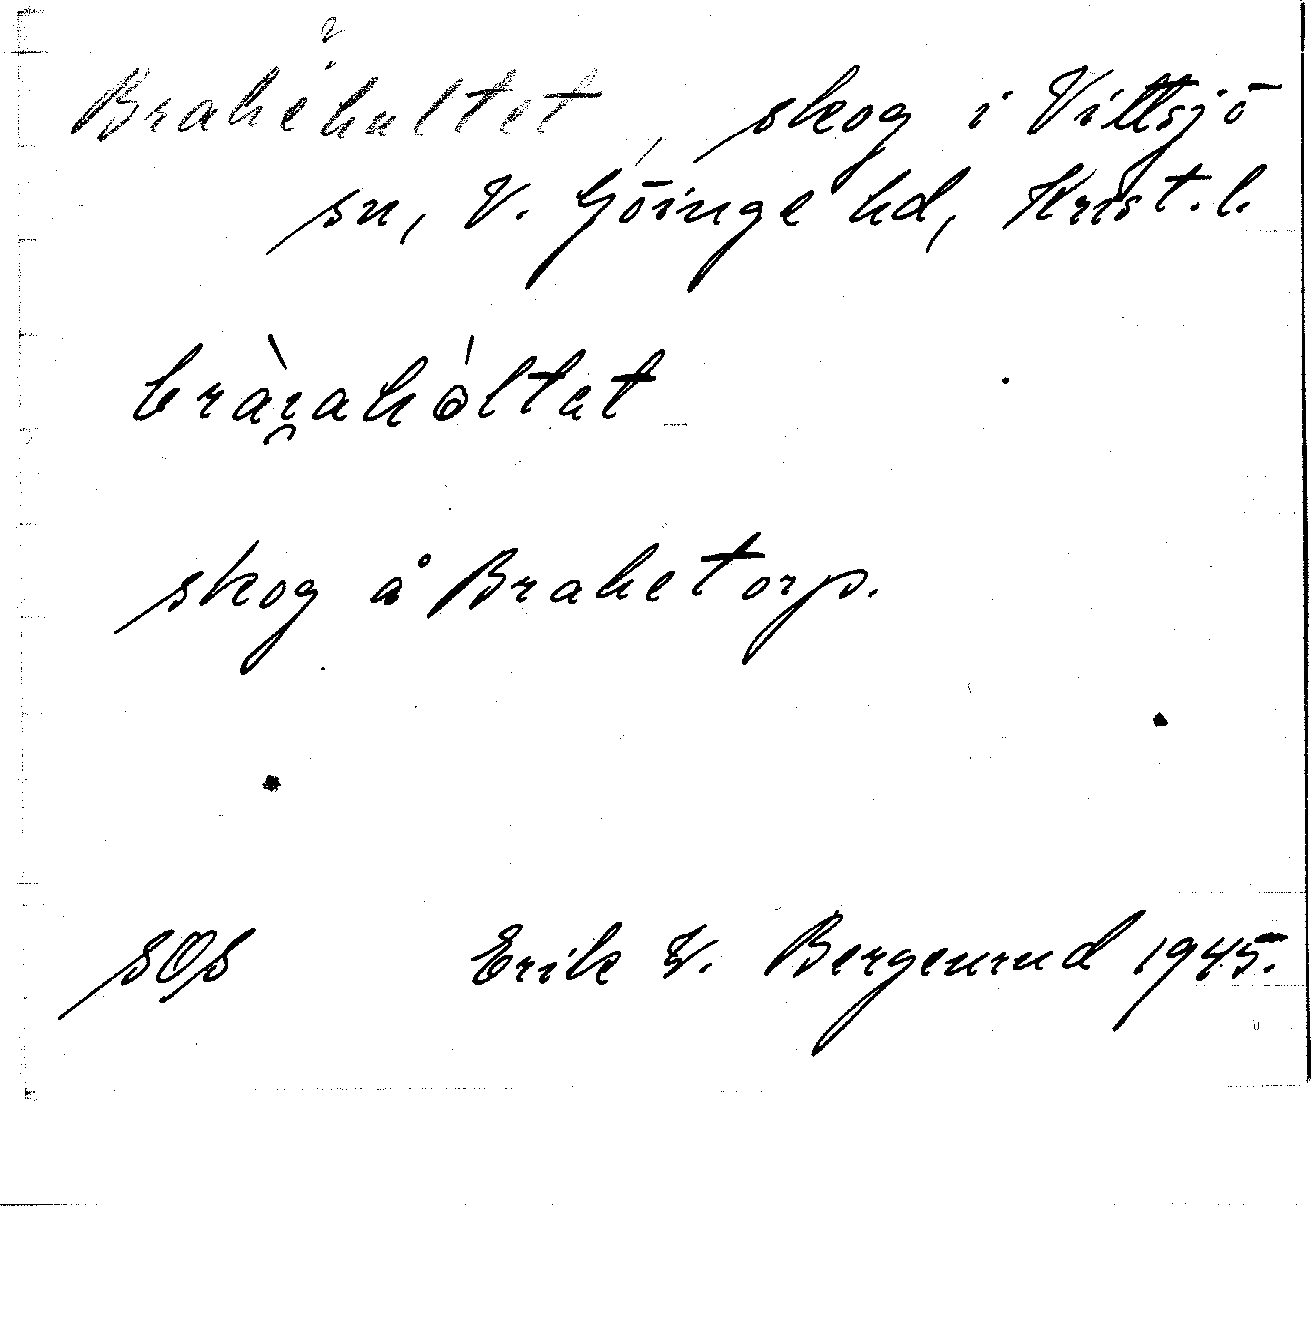 Brahehultet, skog i Vittsjö
sn, V. Göinge hd, Krist.l.
bràrahóltat
skog å Brahetorp.
SOS Erik W. Bergenrud 1945.